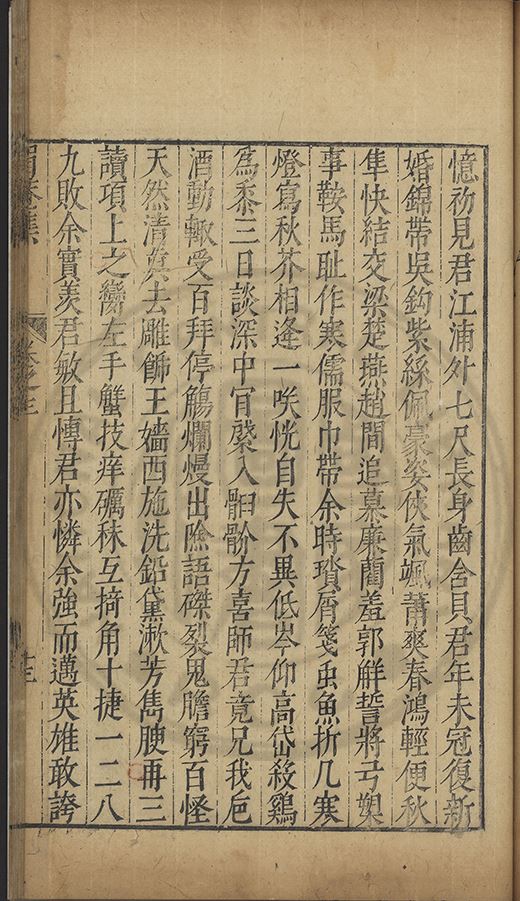 憶初見君江浦外七尺長身齒含貝君年未冠復新
婚錦帶吳鈎紫絲佩豪姿俠氣颯萧爽春鴻輕便秋
隼快結交梁楚燕趙間追慕廉藺羞郭觧誓將弓槊
事鞍馬耻作寒儒服巾帶余時𤨏屑箋虫魚折几寒
燈寫秋芥相逢一咲恍自失不異低岑仰高岱殺鷄
爲黍三日談深中肎綮入䯊骱方喜師君竟兄我巵
酒動輙受百拜停觴爛熳出險語磔裂鬼膽窮百怪
天然清眞去雕飾王嬙西施洗鉛黛漱芳雋腴再三
讀項上之臠左手蟹技痒礪秣互掎角十捷一二八
九敗余實羡君敏且慱君亦憐余強而邁英雄敢誇
卷之三
十三